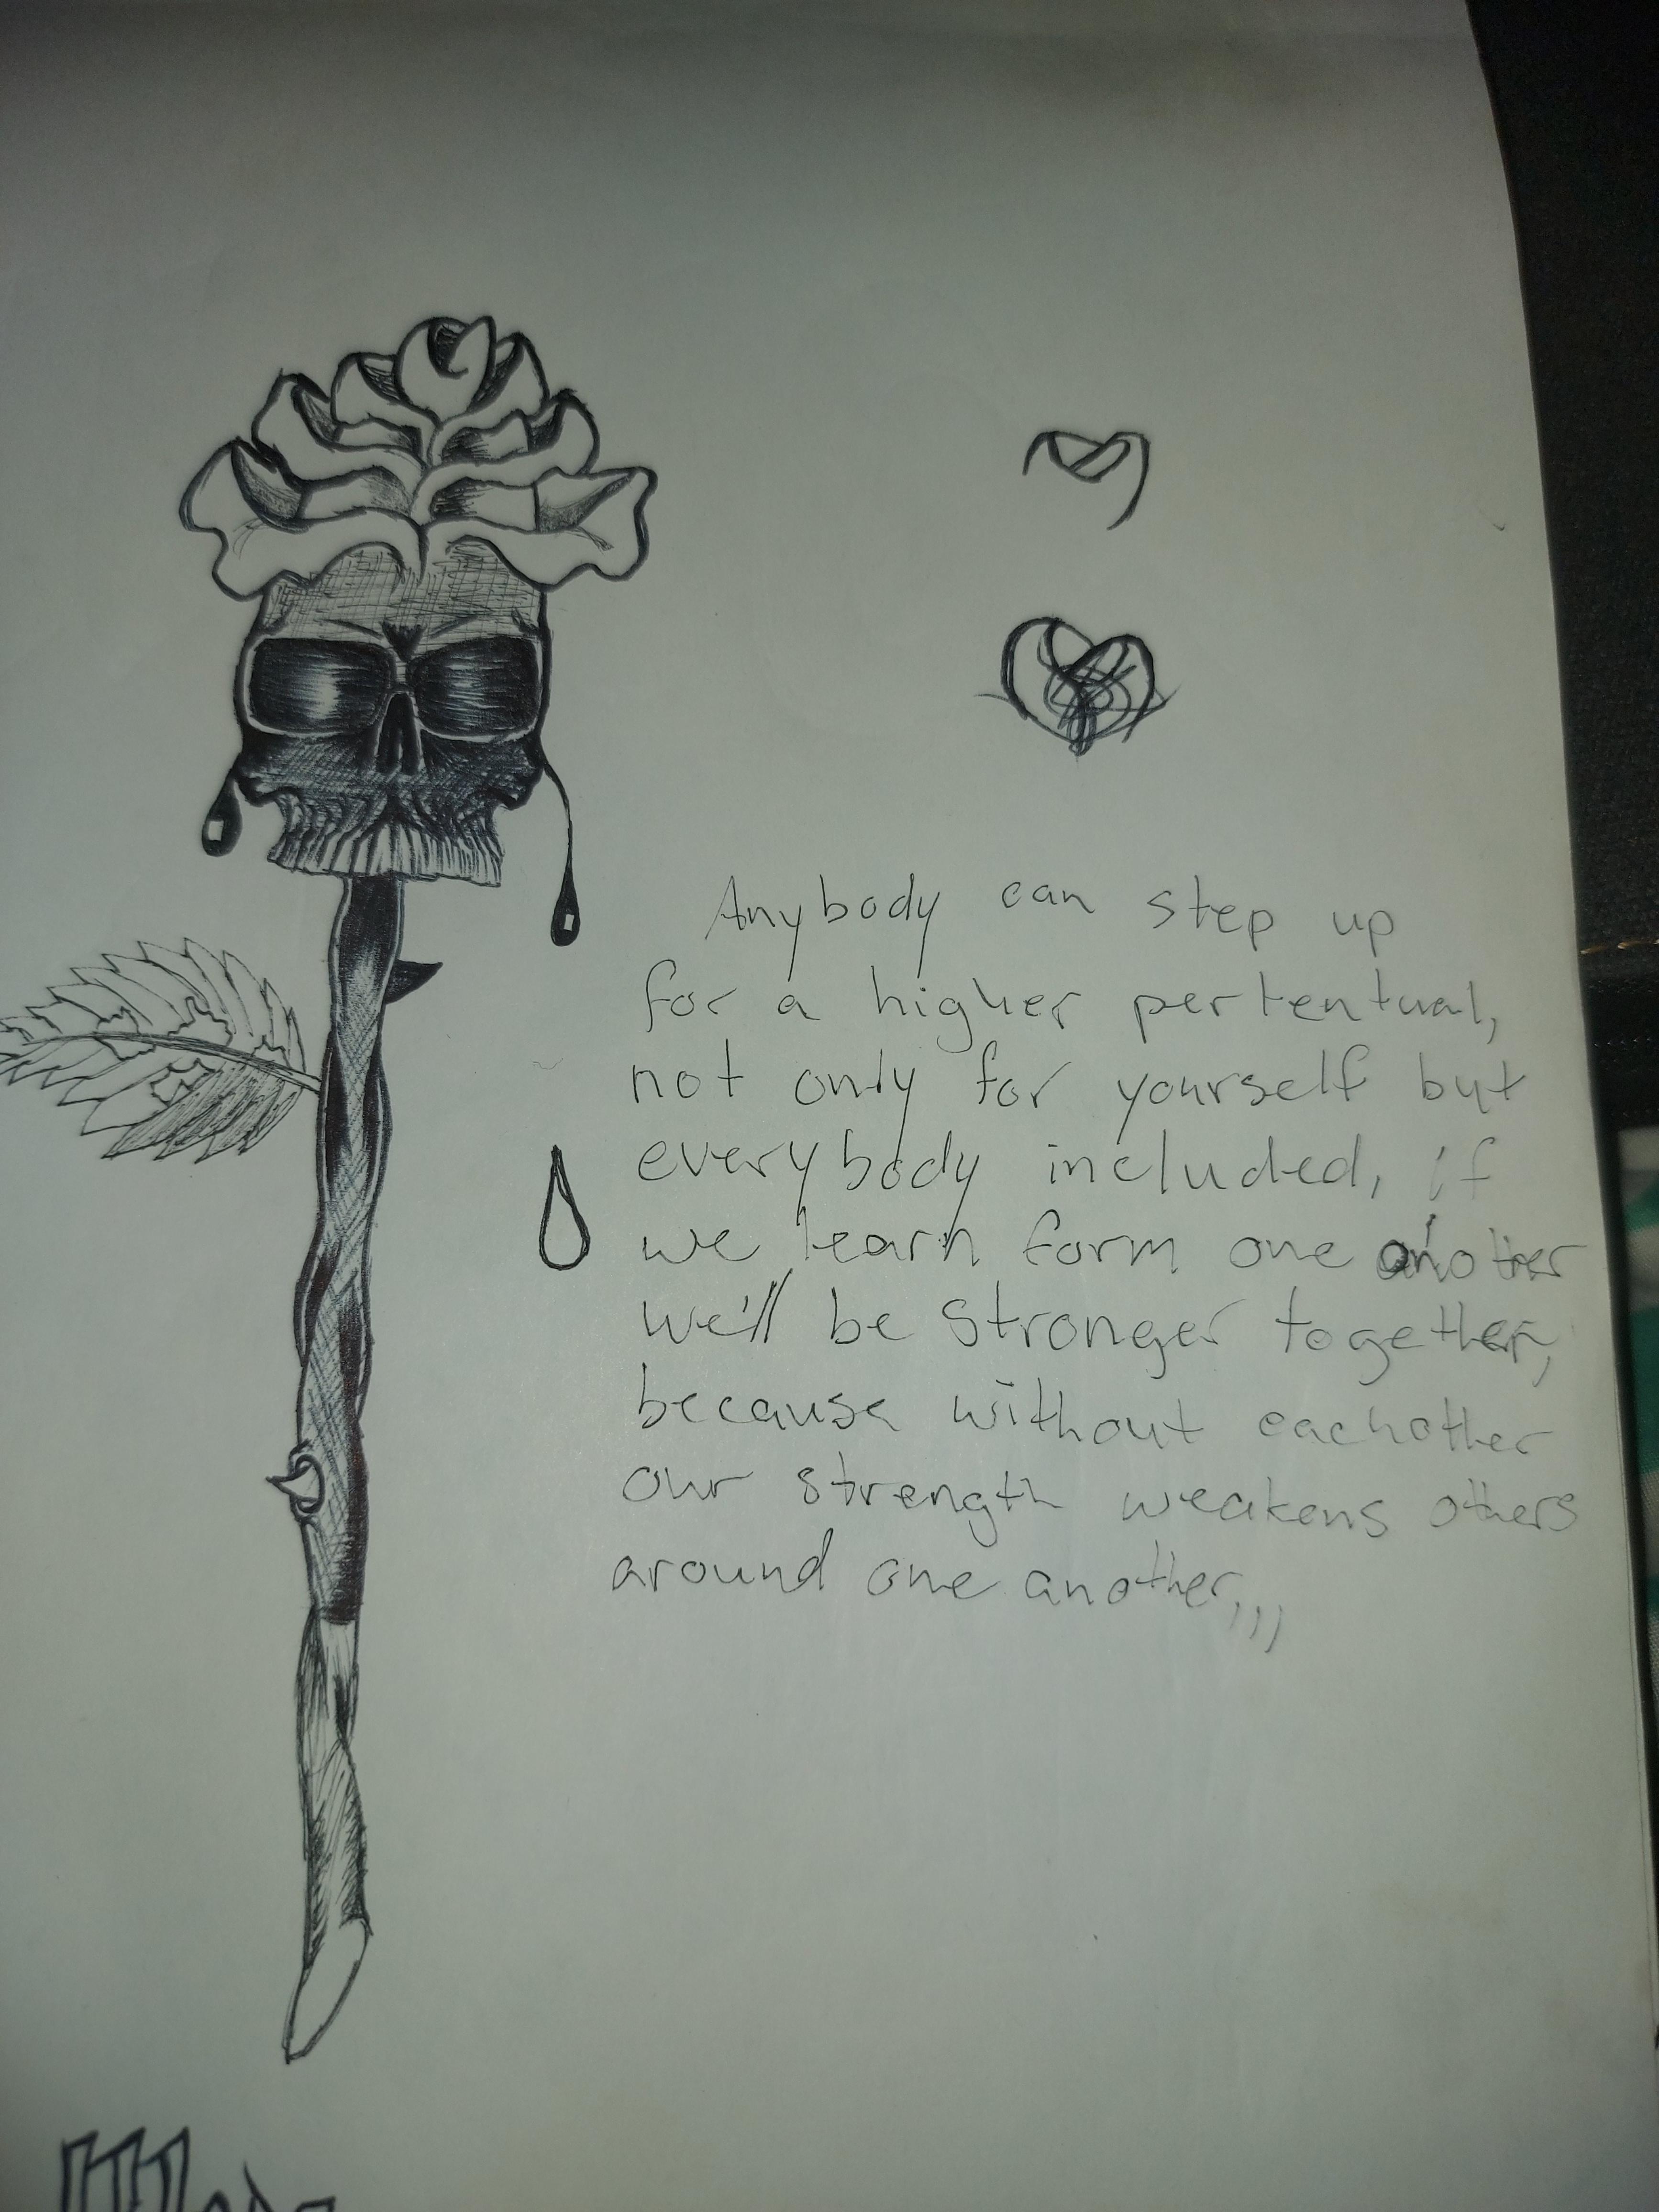 Anybody can step up
for a higher pertentual,
not only for yourself but
everybody included, if
we learn form one another
we'll be stronger together,
because without eachother
our strength weakens others
around one another,,,